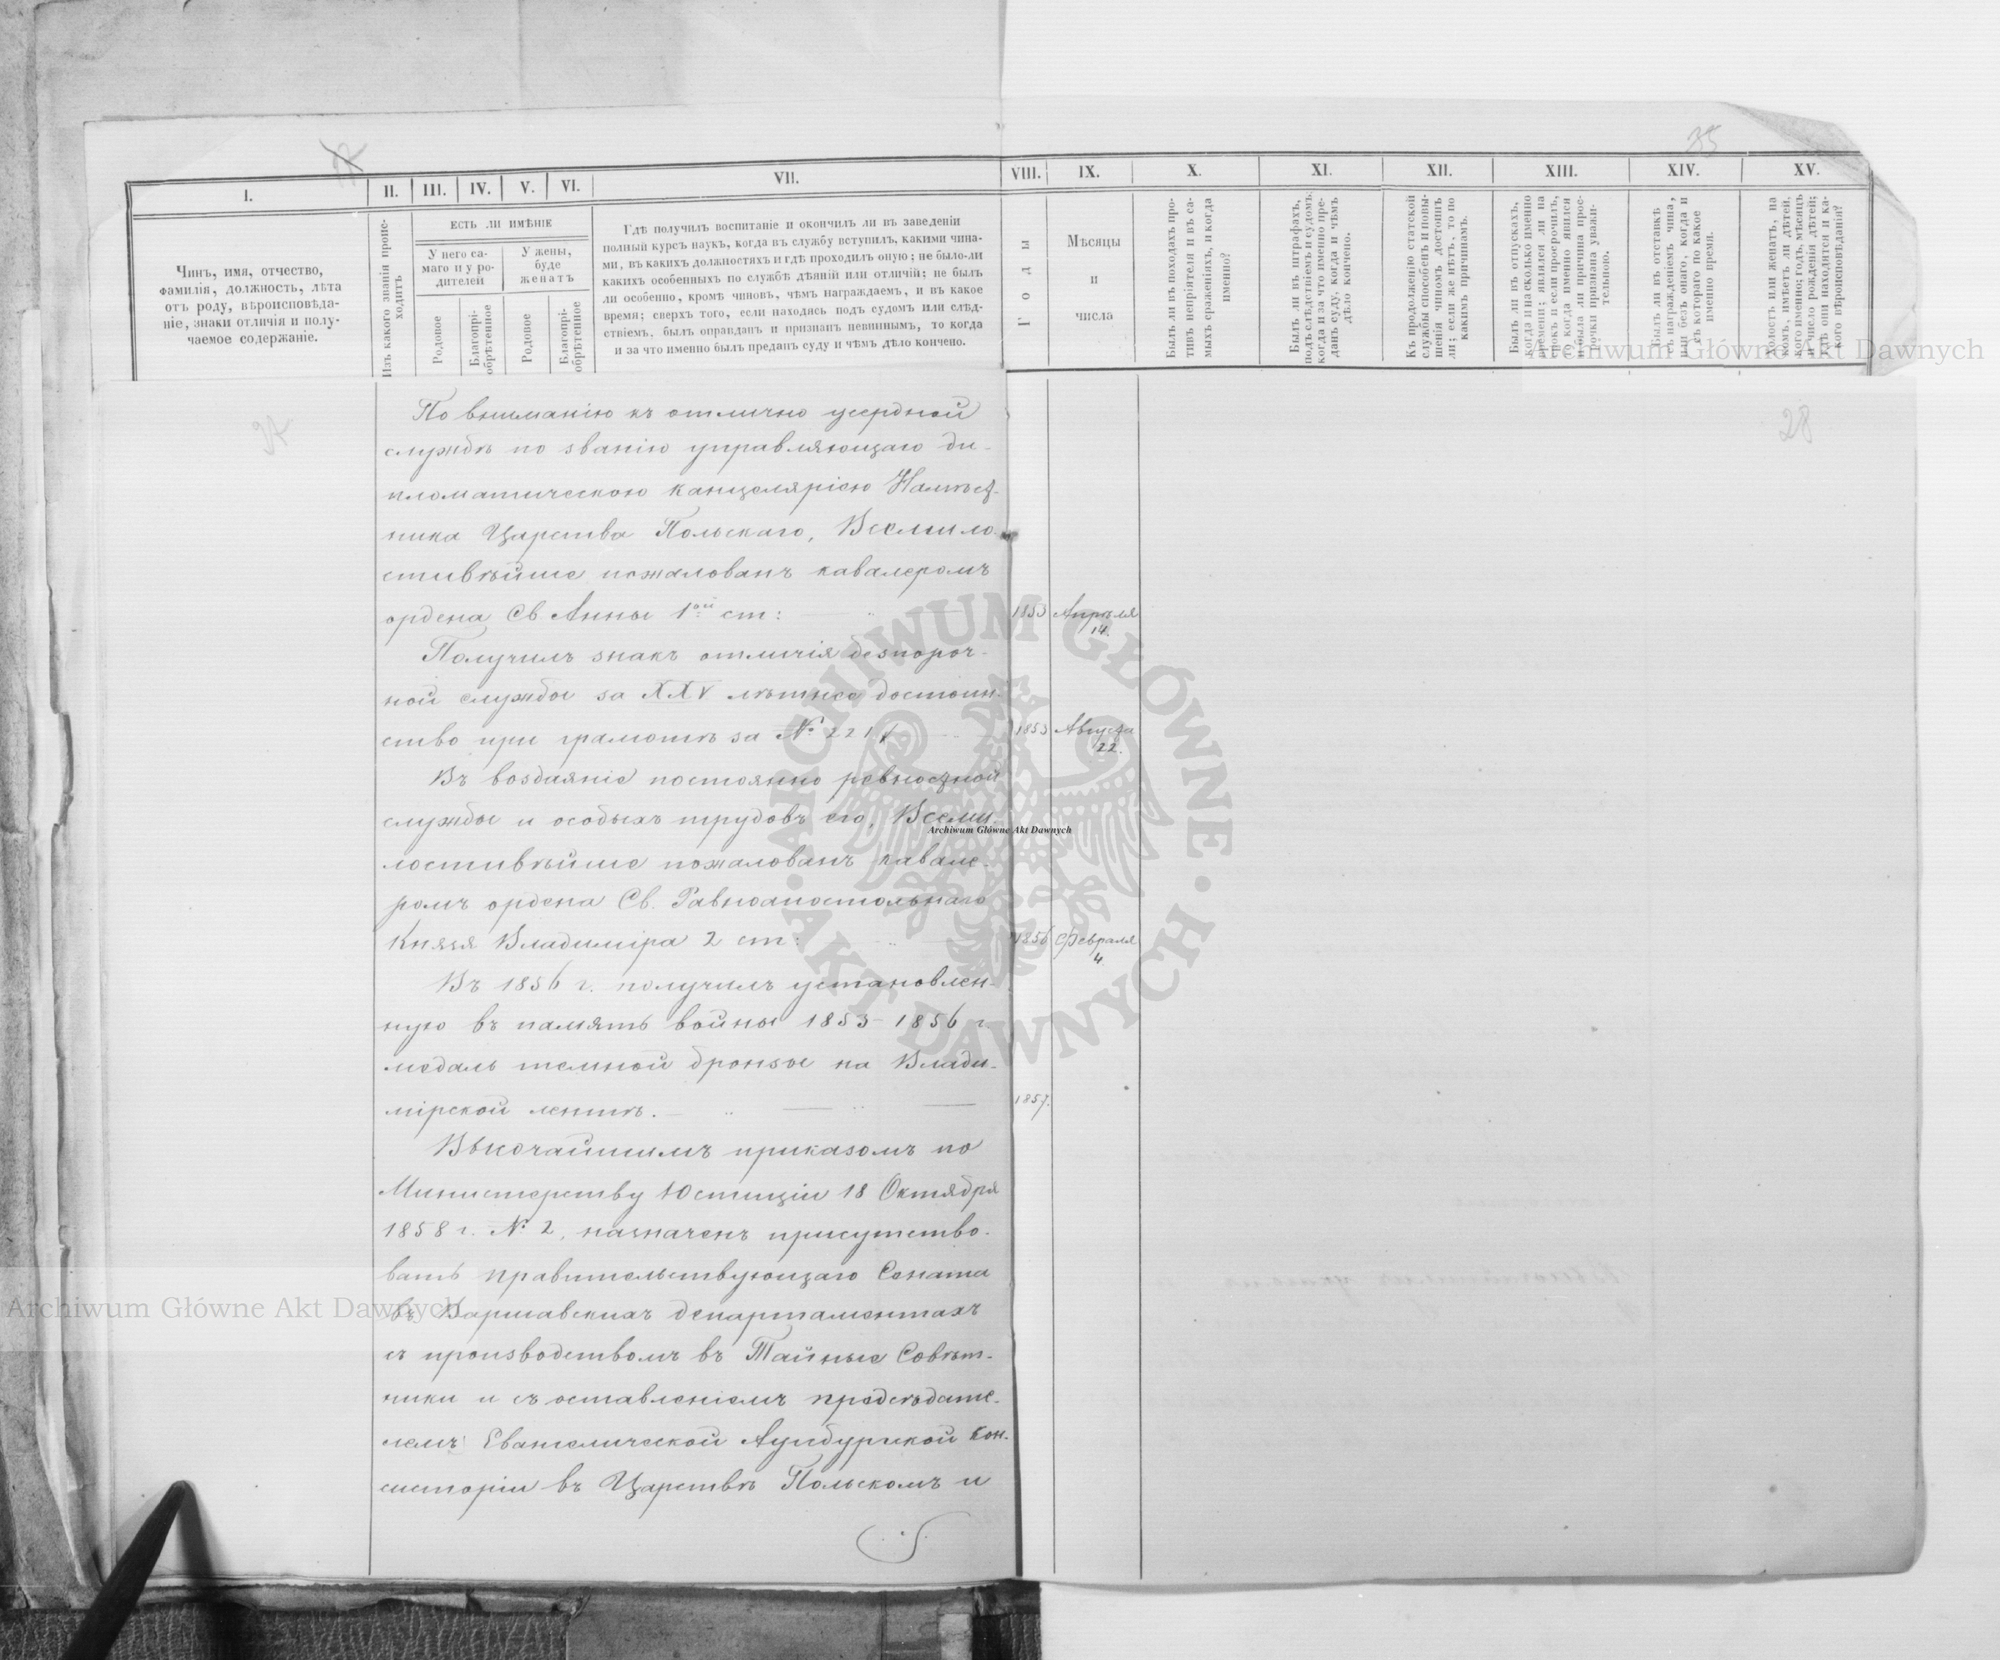 35
I. II. III. IV. V. VI. VII. VIII. IX. X. XI. XII. XIII. XIV. XV.
Чинъ, имя, отчество,
фамилія, должность, лѣта
отъ роду, вѣроисповѣда-
ніе, знаки отличія и полу-
чаемое содержаніе.
Изъ какого званія проис-
ходитъ
ЕСТЬ ЛИ ИМѢНІЕ
У него са-
маго и у ро-
дителей
У жены,
буде
женатъ
Родовое
Благопрі-
обрѣтенное
Родовое
Благопрі-
обрѣтенное
Гдѣ получилъ воспитаніе и окончилъ ли въ заведеніи
полный курсъ наукъ, когда въ службу вступилъ, какими чина-
ми, въ какихъ должностяхъ и гдѣ проходилъ оную; не было-ли
какихъ особенныхъ по службѣ дѣяній или отличій; не былъ
ли особенно, кромѣ чиновъ, чѣмъ награждаемъ, и въ какое
время; сверхъ того, если находясь подъ судомъ или слѣд-
ствіемъ, былъ оправданъ и признанъ невиннымъ, то когда
и за что именно былъ преданъ суду и чѣмъ дѣло кончено.
Годы
Мѣсяцы
и
числа
Былъ ли въ походахъ про-
тивъ непріятеля и въ са-
мыхъ сраженіяхъ, и когда
именно?
Былъ ли въ штрафахъ,
подъ слѣдствіемъ и судомъ;
когда и за что именно пре-
данъ суду, когда и чѣмъ
дѣло кончено.
Къ продолженію статской
службы способенъ и повы-
шенія чиномъ достоинъ
ли; если же нѣтъ, то по
какимъ причинамъ.
Былъ ли въ отпускахъ,
когда и на сколько именно
времени; являлся ли на
срокъ и если просрочилъ,
то когда именно явился
и была ли причина прос-
рочки признана уважи-
тельною.
Былъ ли въ отставкѣ
съ награжденіемъ чина,
или безъ онаго, когда и
съ котораго по какое
именно время.
Холостъ или женатъ, на
комъ, имѣетъ ли дѣтей,
кого именно; годъ, мѣсяцъ
и число рожденія дѣтей;
гдѣ они находятся и ка-
кого вѣроисповѣданія?
28
По вниманію къ отлично усердной
службѣ по званію управляющаго ди-
пломатическою канцеляріею Намѣст-
ника Царства Польскаго, Всемило-
стивѣйше пожалованъ кавалеромъ
ордена Св Анны 1ой ст: 1853 Апрѣля 14.
Получилъ знакъ отличія безпороч-
ной службы за XXV лѣтнее достоин-
ство при грамотѣ за № 221 1853 Августа 22.
Въ воздаяніе постоянно ревностной
службы и особыхъ трудовъ его, Всеми-
лостивѣйше пожалованъ кавале-
ромъ ордена Св. Равноапостольнаго
Князя Владиміра 2 ст: 1856 Февраля 4.
Въ 1856 г. получилъ установлен-
ную въ память войны 1853-1856 г.
медаль темной бронзы на Влади-
мірской лентѣ. 1857.
Высочайшимъ приказомъ по
Министерству Юстиціи 18 Октября
1858 г. № 2, назначенъ присутство-
вать Правительствующаго Сената
въ Варшавскихъ департаментахъ
съ производствомъ въ Тайные Совѣт-
ники и съ оставленіемъ предсѣдате-
лемъ Евангелической Аугсбургской Кон-
систоріи въ Царствѣ Польскомъ и
Archiwum Główne Akt Dawnych
Archiwum Główne Akt Dawnych
Archiwum Główne Akt Dawnych
ARCHIWUM GŁÓWNE · AKT DAWNYCH ·